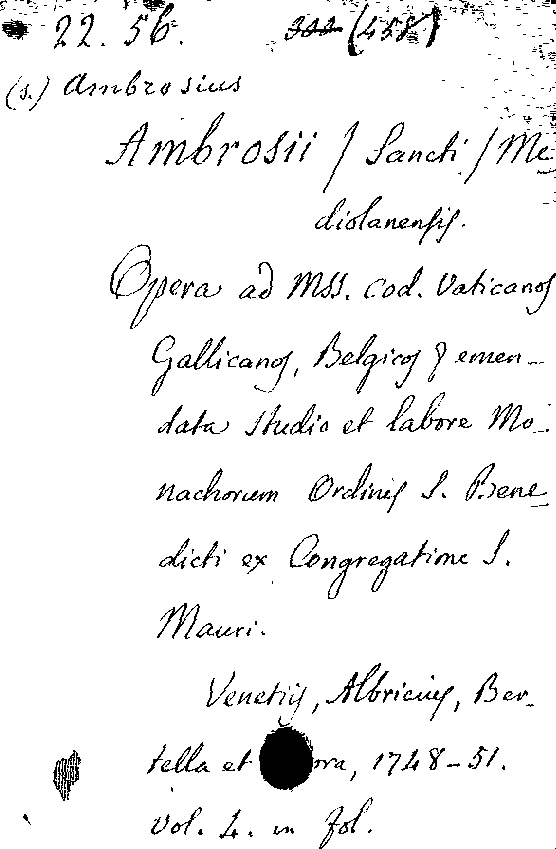 22. 56. 322 (458)
(s.) Ambrosius
Ambrosii / Sancti / Me
diolanensis.
Opera ad Mss. cod. Vaticanos
Gallicanos, Belgicos & emen-
data studio et labore Mo-
nachorum Ordinis S. Bene-
dicti ex Congregatione S.
Mauri.
Venetiis, Albricius, Ber-
tella et ora, 1748-51.
Vol. 4. in fol.